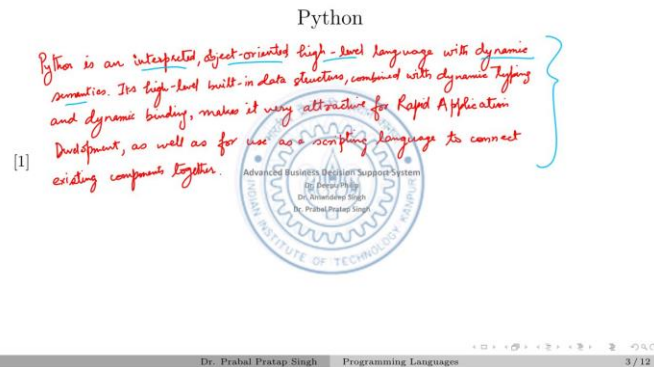 Python
Python is an interpreted, object-oriented high-level language with dynamic
semantics. Its high-level built-in data structures, combined with dynamic Typing
and dynamic binding, makes it very attractive for Rapid Application
Development, as well as for use as a scripting language to connect
existing components together.
[1]
Advanced Business Decision Support System
Dr. Deepu Philip
Dr. Amandeep Singh
Dr. Prabal Pratap Singh
INDIAN INSTITUTE OF TECHNOLOGY KANPUR
Dr. Prabal Pratap Singh Programming Languages 3 / 12